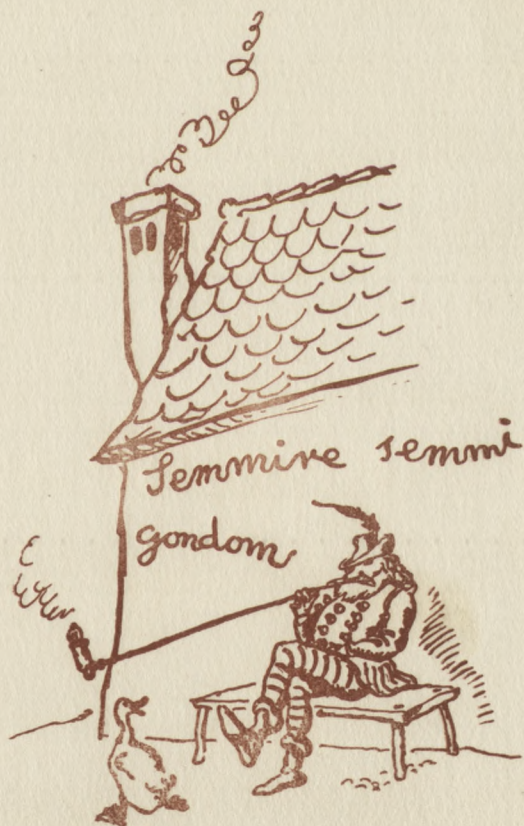 Semmire semmi
gondom